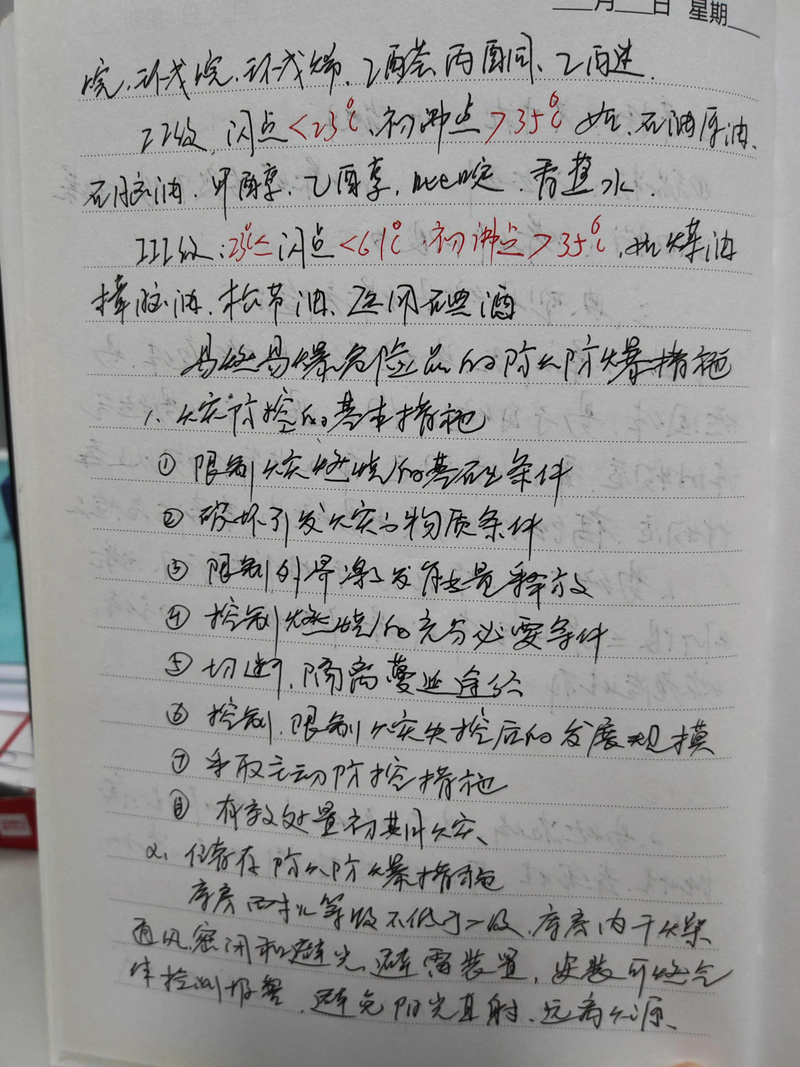 月 日 星期
烷、环戊烷、环戊烯、乙醛、丙酮、乙醚.
II级, 闪点<23℃、初沸点>35℃ 如:石油原油、
石脑油、甲醇、乙醇、吡啶、香蕉水.
III级:23℃≤闪点<61℃、初沸点>35℃, 如煤油
樟脑油、松节油、医用碘酒
易燃易爆危险品的防火防爆措施
1、火灾防控的基本措施
① 限制火灾燃烧的基础条件
② 破坏引发火灾的物质条件
③ 限制外界激发能量释放
④ 控制燃烧的充分必要条件
⑤ 切断、隔离蔓延途径
⑥ 控制、限制火灾失控后的发展规模
⑦ 采取主动防控措施
⑧ 有效处置初期火灾、
2、储存防火防爆措施
库房耐火等级不低于二级、库房内干燥
通风、密闭和避光、避雷装置, 安装可燃气
体检测报警、避免阳光直射、远离火源、